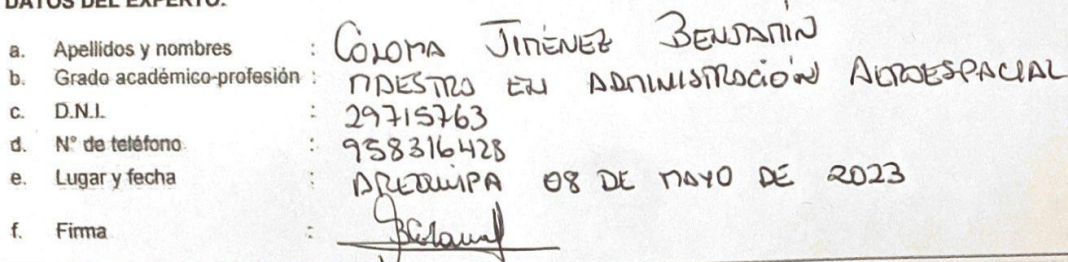 DATOS DEL EXPERTO:
a. Apellidos y nombres : COLOMA JIMÉNEZ BENJAMÍN
b. Grado académico-profesión : MAESTRO EN ADMINISTRACIÓN AEROESPACIAL
c. D.N.I. : 29715763
d. N° de teléfono : 958316428
e. Lugar y fecha : AREQUIPA 08 DE MAYO DE 2023
f. Firma :